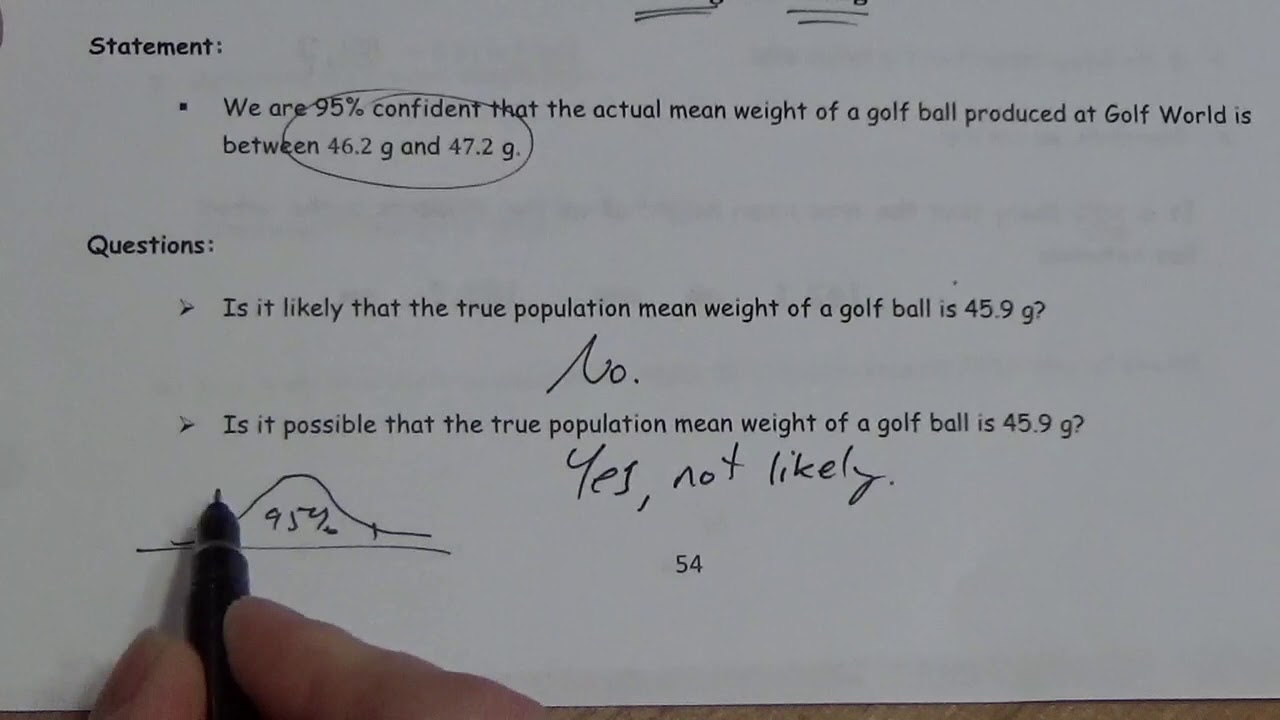 Statement:
▪ We are 95% confident that the actual mean weight of a golf ball produced at Golf World is
between 46.2 g and 47.2 g.
Questions:
➢ Is it likely that the true population mean weight of a golf ball is 45.9 g?
No.
➢ Is it possible that the true population mean weight of a golf ball is 45.9 g?
Yes, not likely.
95%
54